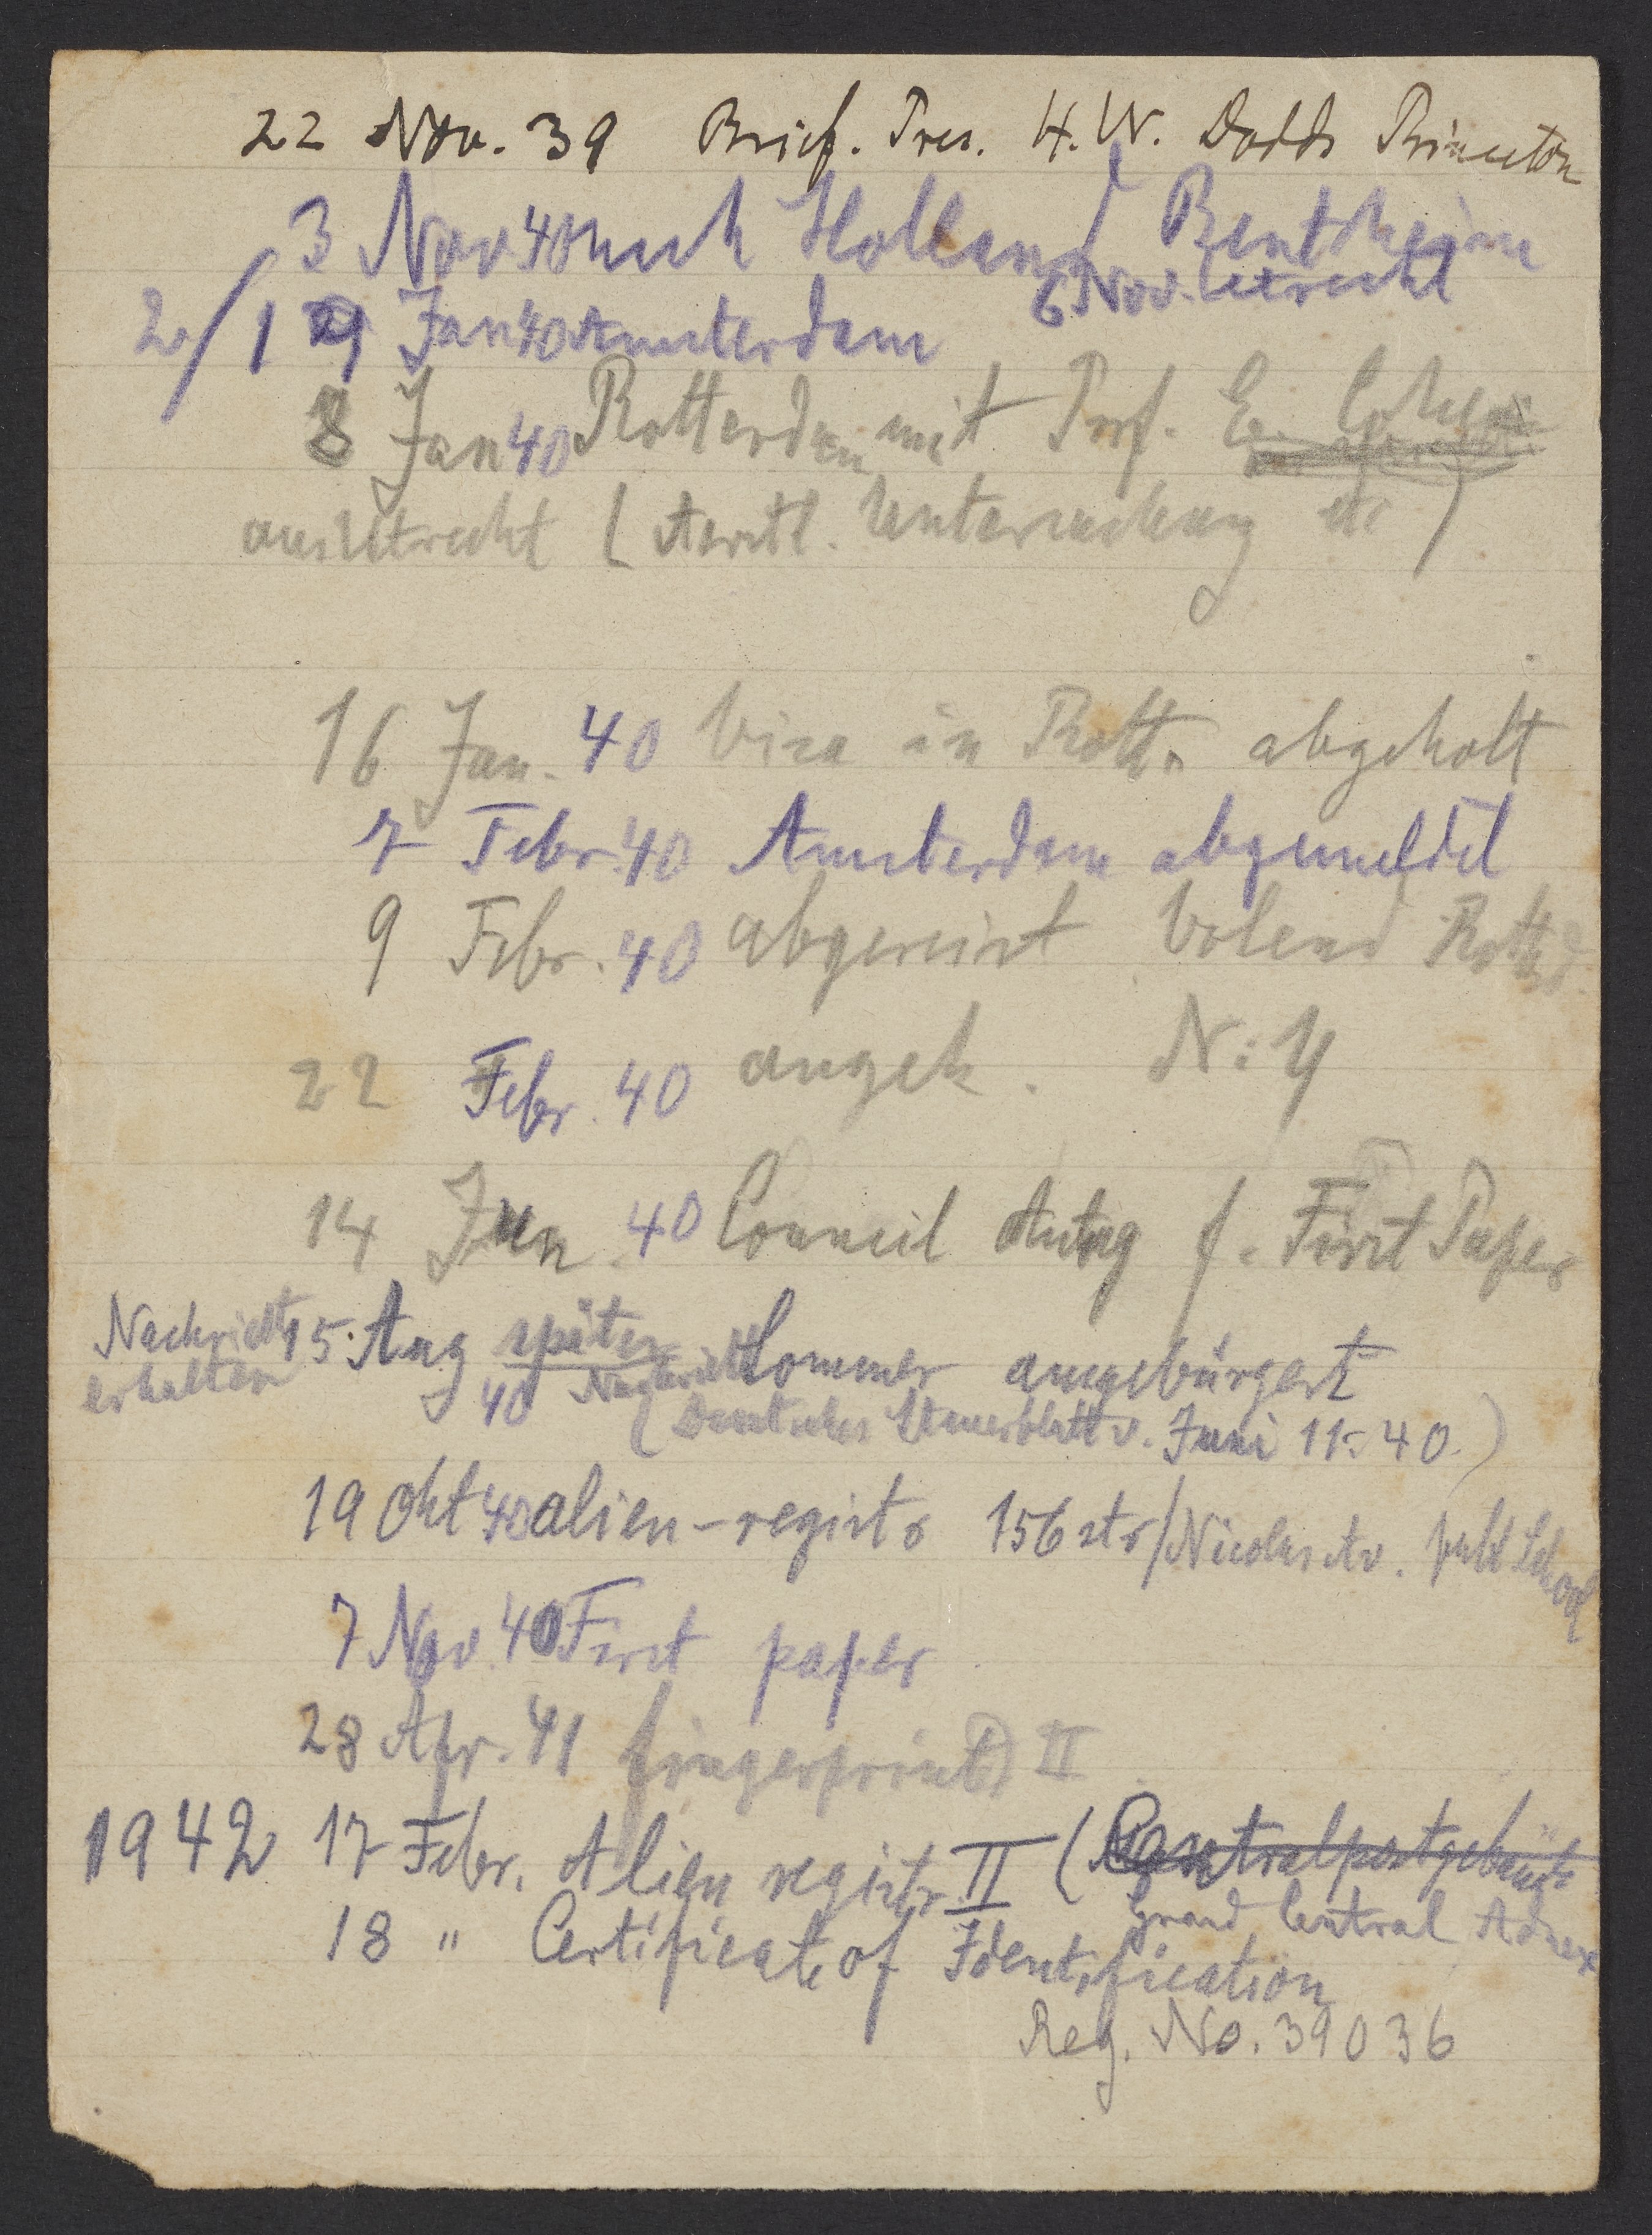 22 Nov. 39 Brief. Pres. H. W. Dodds Princeton
3 Nov 40 nach Holland Bentheim
6 Nov. Utrecht
2/1 9 Jan 40 Amsterdam
8 Jan 40 Rotterdam mit Prof. E. Cohen
aus Utrecht (Aerztl. Untersuchung etc)
16 Jan. 40 Visa in Rott. abgeholt
7 Febr. 40 Amsterdam abgemeldet
9 Febr. 40 abgereist Volend Rottd.
22 Febr. 40 angek. N.Y
14 Jun. 40 Council Antrag f. First Paper
Nachricht 15. Aug später Sommer ausgebürgert
erhalten 40 Nachricht (Deutsches Steuerblatt v. Juni 11. 40.)
19 Okt 40 alien-registr 156 str/Nicolas Av. publ School
7 Nov. 40 First paper
28 Apr. 41 fingerprint II
1942 17 Febr. Alien registr. II (Centralpostgebäude
Grand Central Annex
18 " Certificate of Identification
Reg. No. 39036